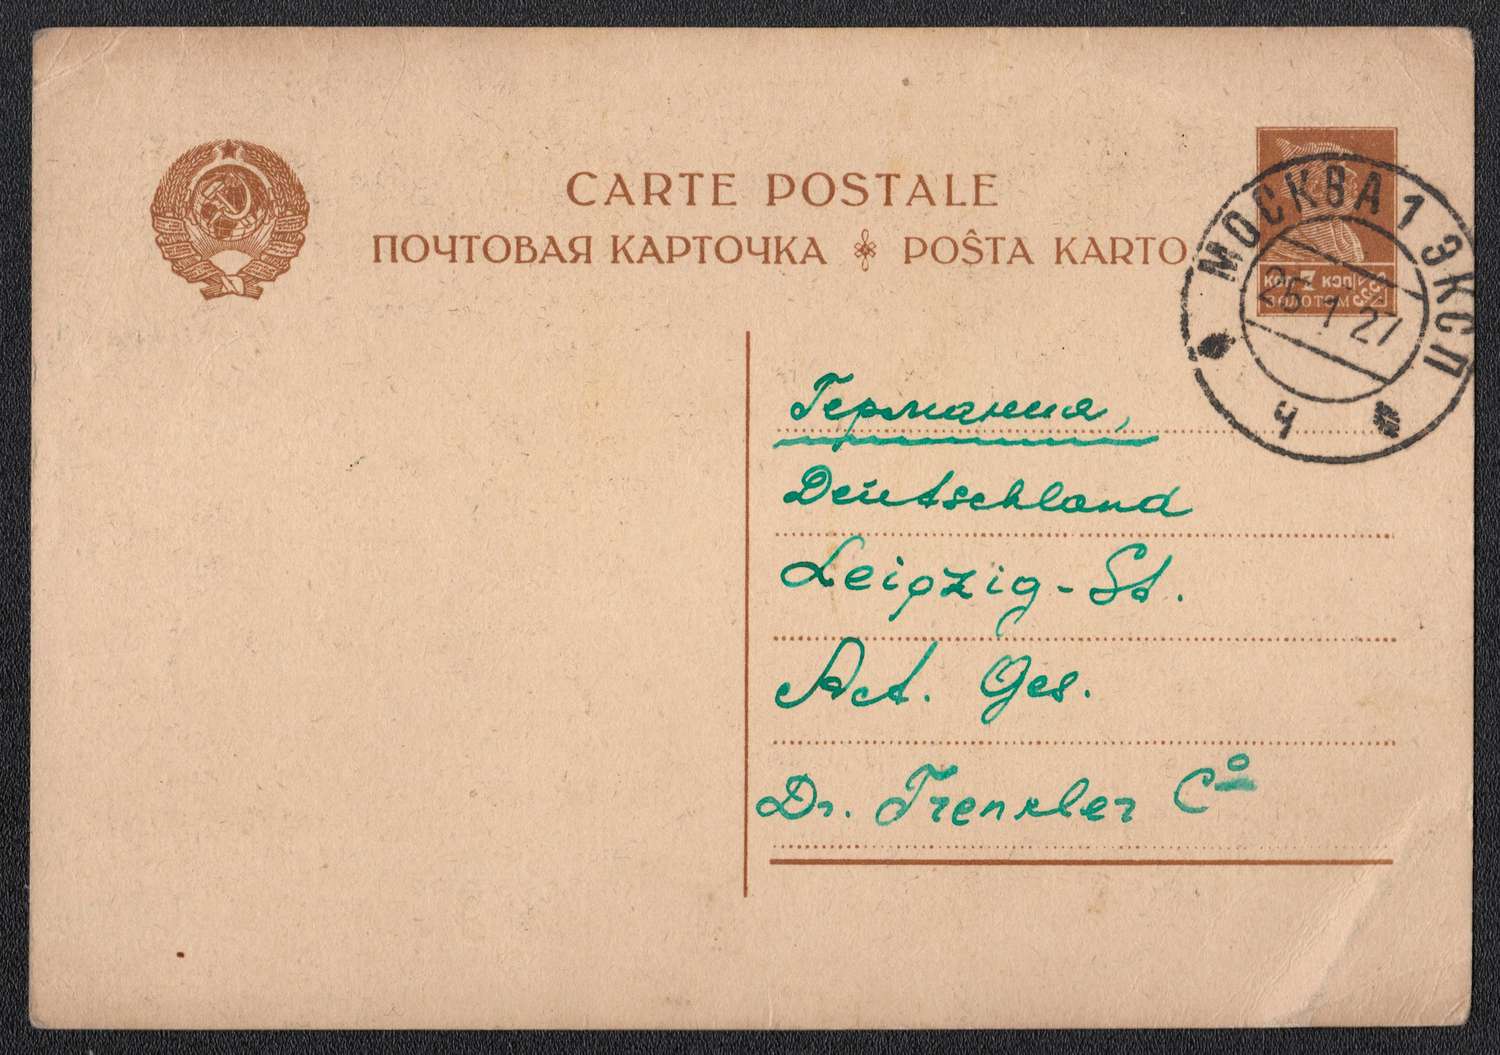 CARTE POSTALE
ПОЧТОВАЯ КАРТОЧКА POŜTA KARTO
КОП 7 КОП
ЗОЛОТОМ
СССР
МОСКВА 1 ЭКСП
25 1 27
Ч
Германия,
Deutschland
Leipzig-St.
Act. Ges.
Dr. Trenkler Cº